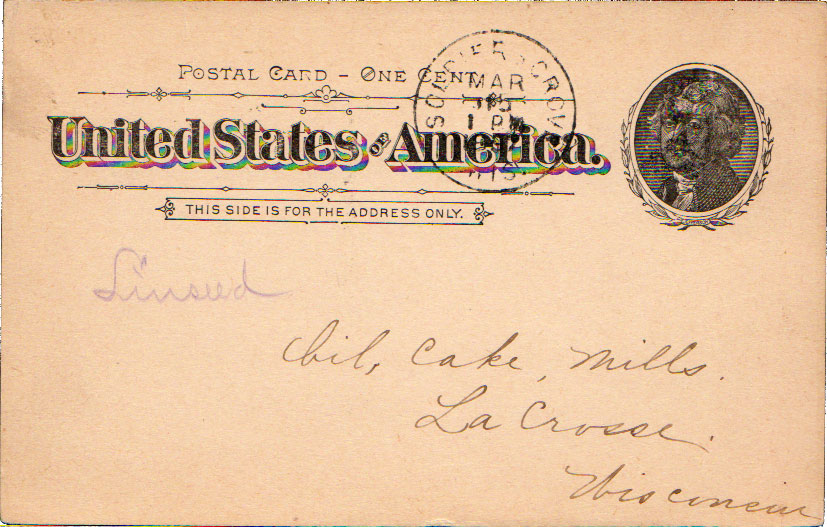 POSTAL CARD - ONE CENT.
United States of America.
THIS SIDE IS FOR THE ADDRESS ONLY.
MAR
1 PM
WIS.
Linseed
Oil, Cake, Mills.
La Crosse.
Wisconsin